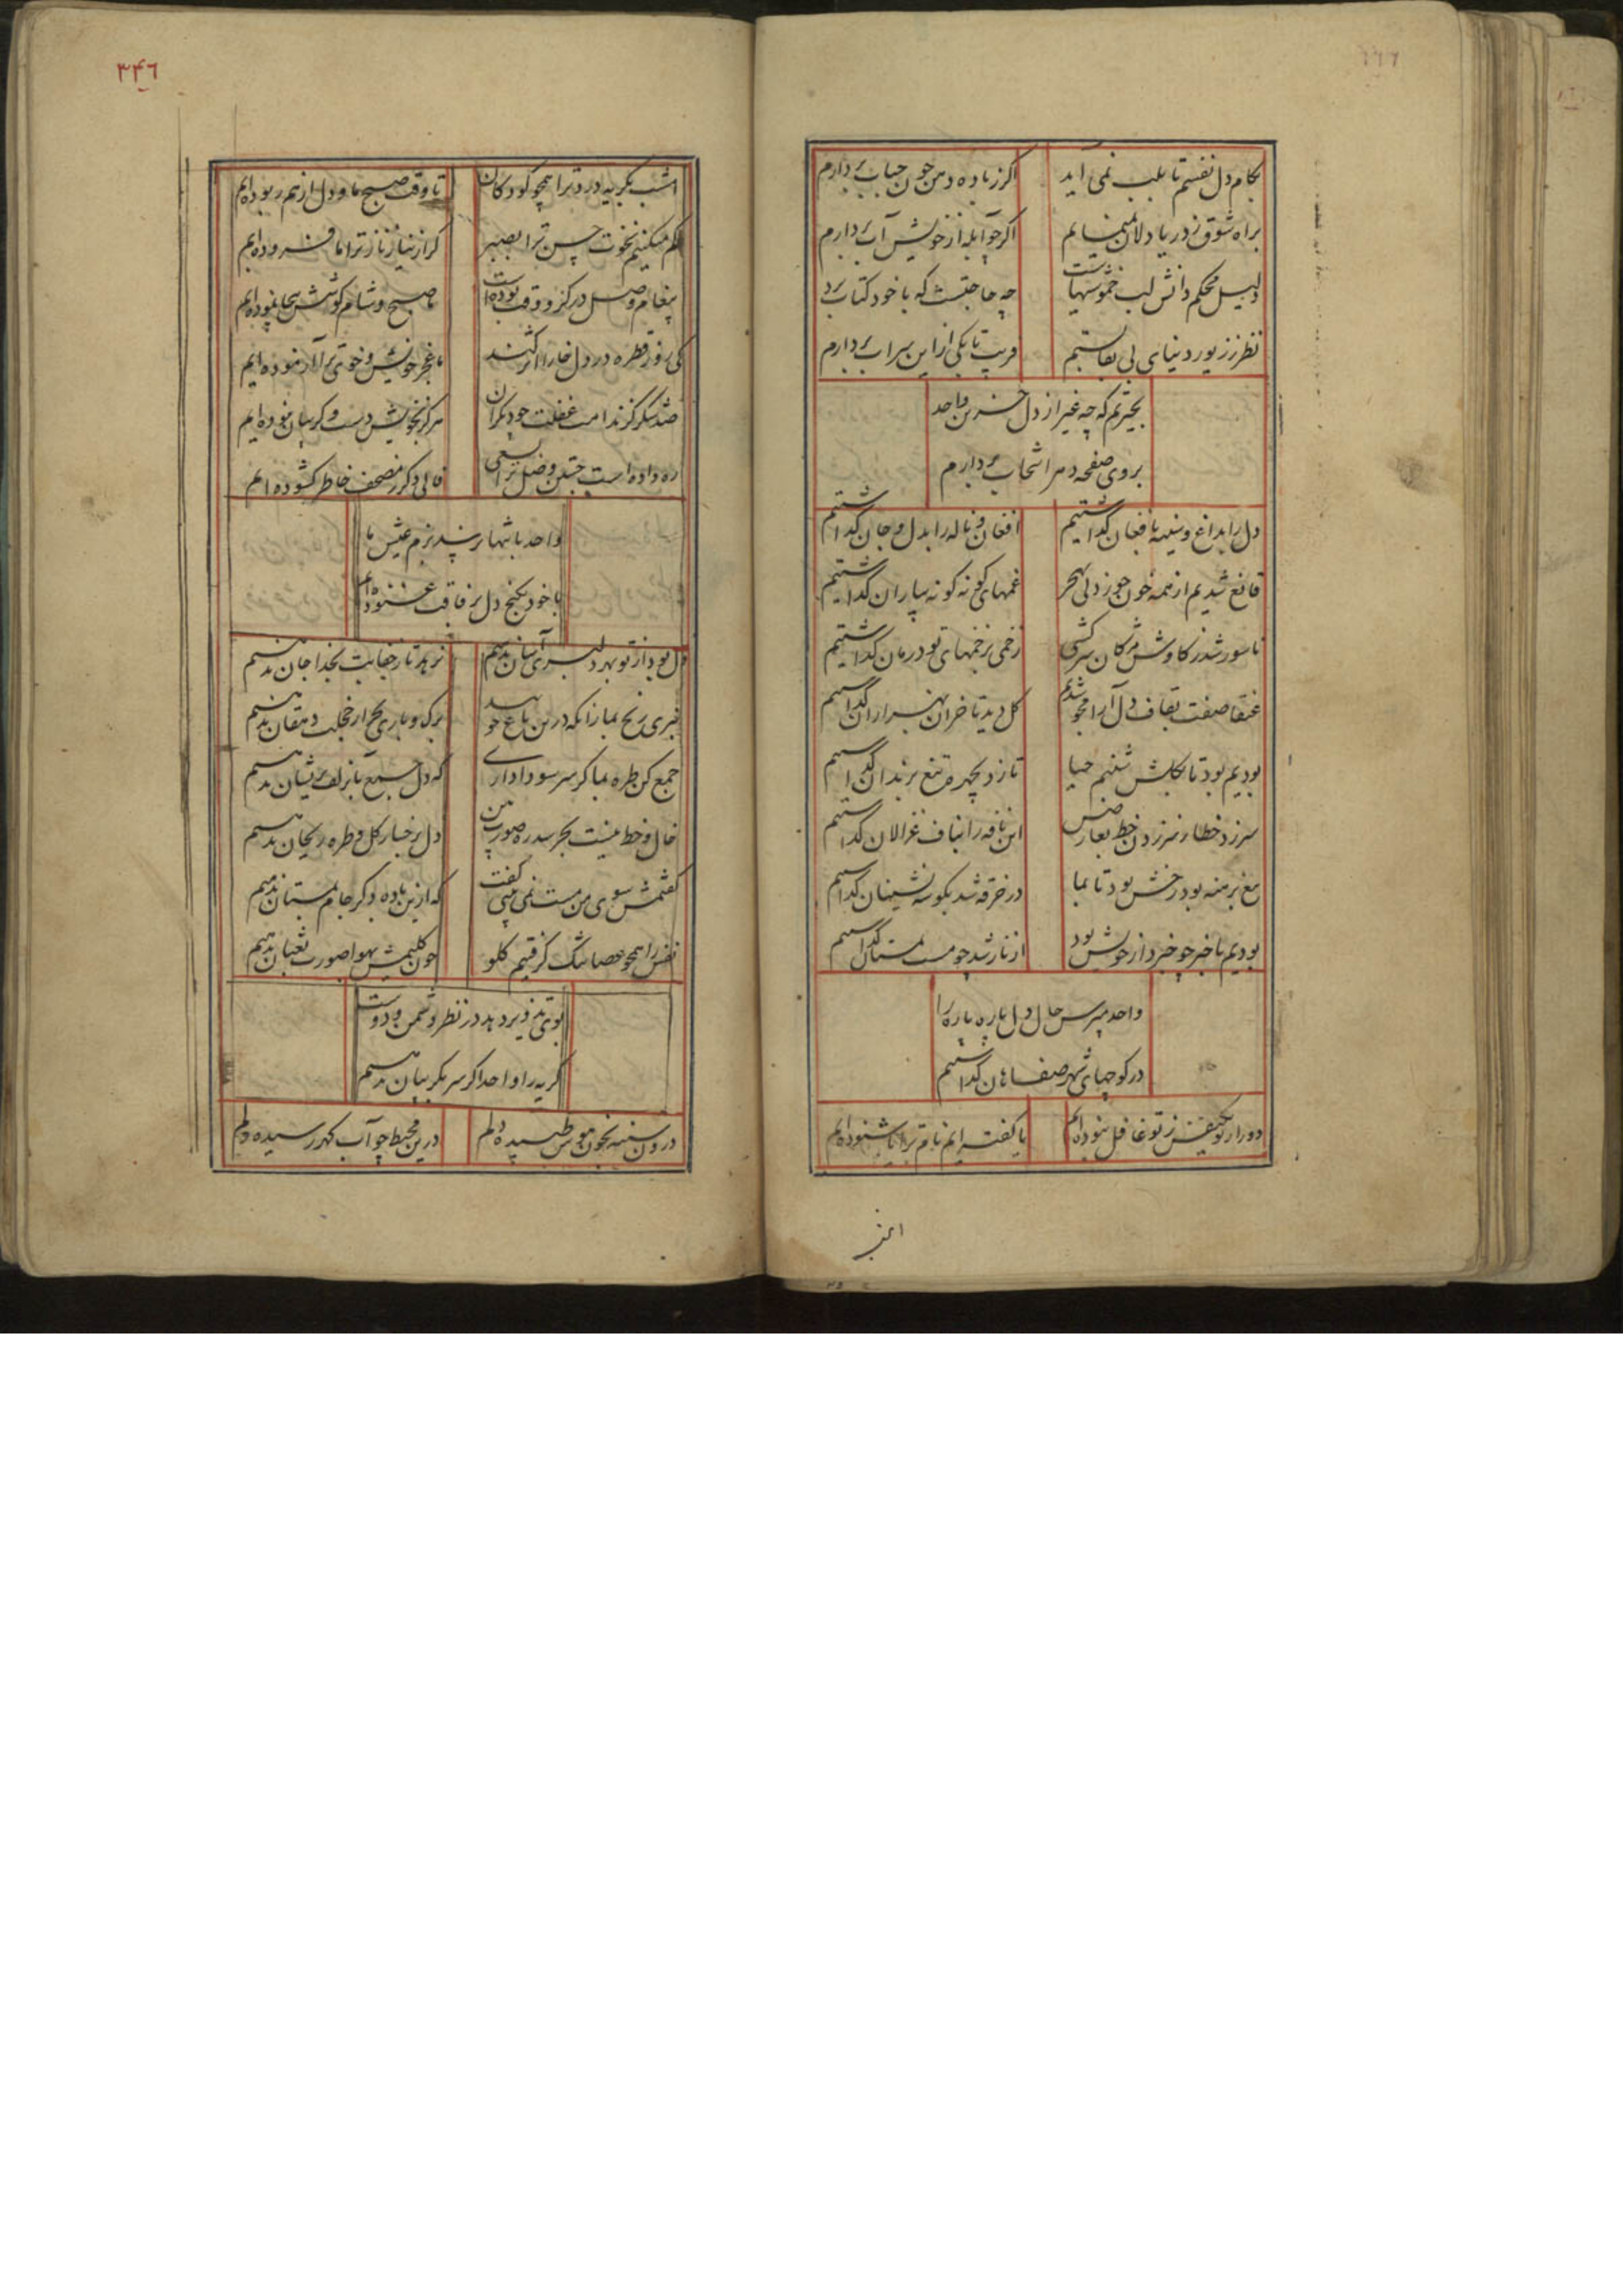 بکام دل نفسم تا بلب نمی آید اکر زباده دهن چون حباب بردارم
براه شوق ز دریا دلان اکر چو آبله از خویش آب بردارم
دلیل محکم دانش لب خموشیهاست چه حاجتست که با خود کتاب بردارم
نظر ز زیور دنیای بی بقا بستم فریب تا بکی از این سراب بردارم
بحیرتم که چه غیر از دل حزین واحد
بروی صفحه دهر انتخاب بردارم
دل را بداغ و سینه بافغان کذاشتیم افغان و ناله را بدل و جان کذاشتیم
قانع شدیم از همه خون جکر غمهای کونه کونه بیاران کذاشتیم
ناسور شد ز کاوش مژکان سرکشی زخمی که زخمهای تو درمان کذاشتیم
عنقا صفت بقاف دل آرا محو شدیم کل دید تا خزان بهزاران کذاشتیم
بودیم بود تا بکلش شبنم حیا تا زد بچهره تیغ برندان کذاشتیم
سر زد خطا ز سر زدن خط بعارضش این نافه را بناف غزالان کذاشتیم
تیغ برهنه بود رخش بود تا بما در خرقه شد بکوشه نشینان کذاشتیم
بودیم با خبر چو خبردار خویش بود از ناز شد چو مست بمستان کذاشتیم
واحد مپرس حال دل پاره پاره را
در کوچهای شهر صفاهان کذاشتیم
دور از تو یکنفس ز تو غافل نبوده ایم یا کفته ایم نام ترا یا شنوده ایم
امشب
۳۴۶
امشب بکریه درد ترا همچو کودکان تا وقت صبح ما و دل از هم ربوده ایم
کم میکنیم نخوت حسن ترا بصبر کر از نیاز ناز ترا ما فزوده ایم
پیغام وصل در کرو وقت بوده است ما صبح و شام کوشش بیجا نموده ایم
کی روز قطره در دل خارا اثر کند ما عجز خویش و خوی ترا آزموده ایم
صد شکر کز ندامت غفلت چو دیکران هرکز بخویش دست و کریبان نبوده ایم
ره داده است جستن وصل ترا بسعی فالی دکر ز مصحف خاطر کشوده ایم
واحد بانتها نرسد بزم عیش ما
با خود بکنج دل برفاقت غنوده ایم
دل بود از تو بهر دلبری آسان ندهیم نبرد تا ز جفایت بخدا جان ندهیم
خبری رنج بما زانکه درین باغ چو بید برک و باری بجز از خجلت دهقان ندهیم
جمع کن طره بما کر سر سودا داری که دل جمع بآن زلف پریشان ندهیم
خال و خط نیست بجز سد ره صورت من دل برخسار کل و طره ریحان ندهیم
کفتمش سوی من مست نمی بینی کفت که ازین باده دکر جام بمستان ندهیم
نفس را همچو عصا تنک کرفتیم کلو چون کلیمش بهوا صورت ثعبان ندهیم
بوی تزویر دهد در نظر دشمن و دوست
کریه را واحد اکر سر بکریبان ندهیم
درون سینه بخون هوس طپیده دلم درین محیط چو آب کهر رسیده دلم